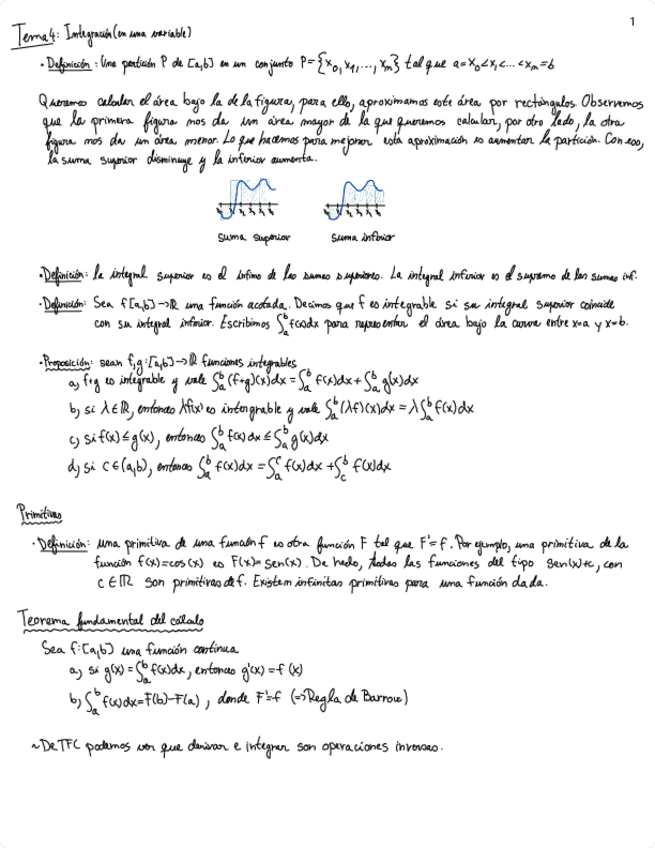 1
Tema 4: Integración (en una variable)
· Definición: Una partición P de [a,b] es un conjunto P={x₀,x₁,...,xₘ} tal que a=x₀<x₁<...<xₘ=b
Queremos calcular el área bajo la de la figura, para ello, aproximamos este área por rectángulos. Observemos
que la primera figura nos da un área mayor de la que queremos calcular, por otro lado, la otra
figura nos da un área menor. Lo que hacemos para mejorar esta aproximación es aumentar la partición. Con eso,
la suma superior disminuye y la inferior aumenta.
suma superior suma inferior
· Definición: la integral superior es el ínfimo de las sumas superiores. La integral inferior es el supremo de las sumas inf.
· Definición: Sea f[a,b]→ℝ una función acotada. Decimos que f es integrable si su integral superior coincide
con su integral inferior. Escribimos ∫ₐᵇ f(x)dx para representar el área bajo la curva entre x=a y x=b.
· Proposición: sean f,g:[a,b]→ℝ funciones integrables
a) f+g es integrable y vale ∫ₐᵇ (f+g)(x)dx = ∫ₐᵇ f(x)dx + ∫ₐᵇ g(x)dx
b) si λ∈ℝ, entonces λf(x) es integrable y vale ∫ₐᵇ (λf)(x)dx = λ∫ₐᵇ f(x)dx
c) si f(x)≤g(x), entonces ∫ₐᵇ f(x)dx ≤ ∫ₐᵇ g(x)dx
d) si c∈(a,b), entonces ∫ₐᵇ f(x)dx = ∫ₐᶜ f(x)dx + ∫꜀ᵇ f(x)dx
Primitivas
· Definición: una primitiva de una función f es otra función F tal que F'=f. Por ejemplo, una primitiva de la
función f(x)=cos(x) es F(x)=sen(x). De hecho, todas las funciones del tipo sen(x)+c, con
c∈ℝ son primitivas de f. Existen infinitas primitivas para una función dada.
Teorema fundamental del cálculo
Sea f:[a,b] una función continua
a) si g(x)=∫ₐᵇ f(x)dx, entonces g'(x)=f(x)
b) ∫ₐᵇ f(x)dx=F(b)-F(a), donde F'=f (=>Regla de Barrow)
~De TFC podemos ver que derivar e integrar son operaciones inversas.